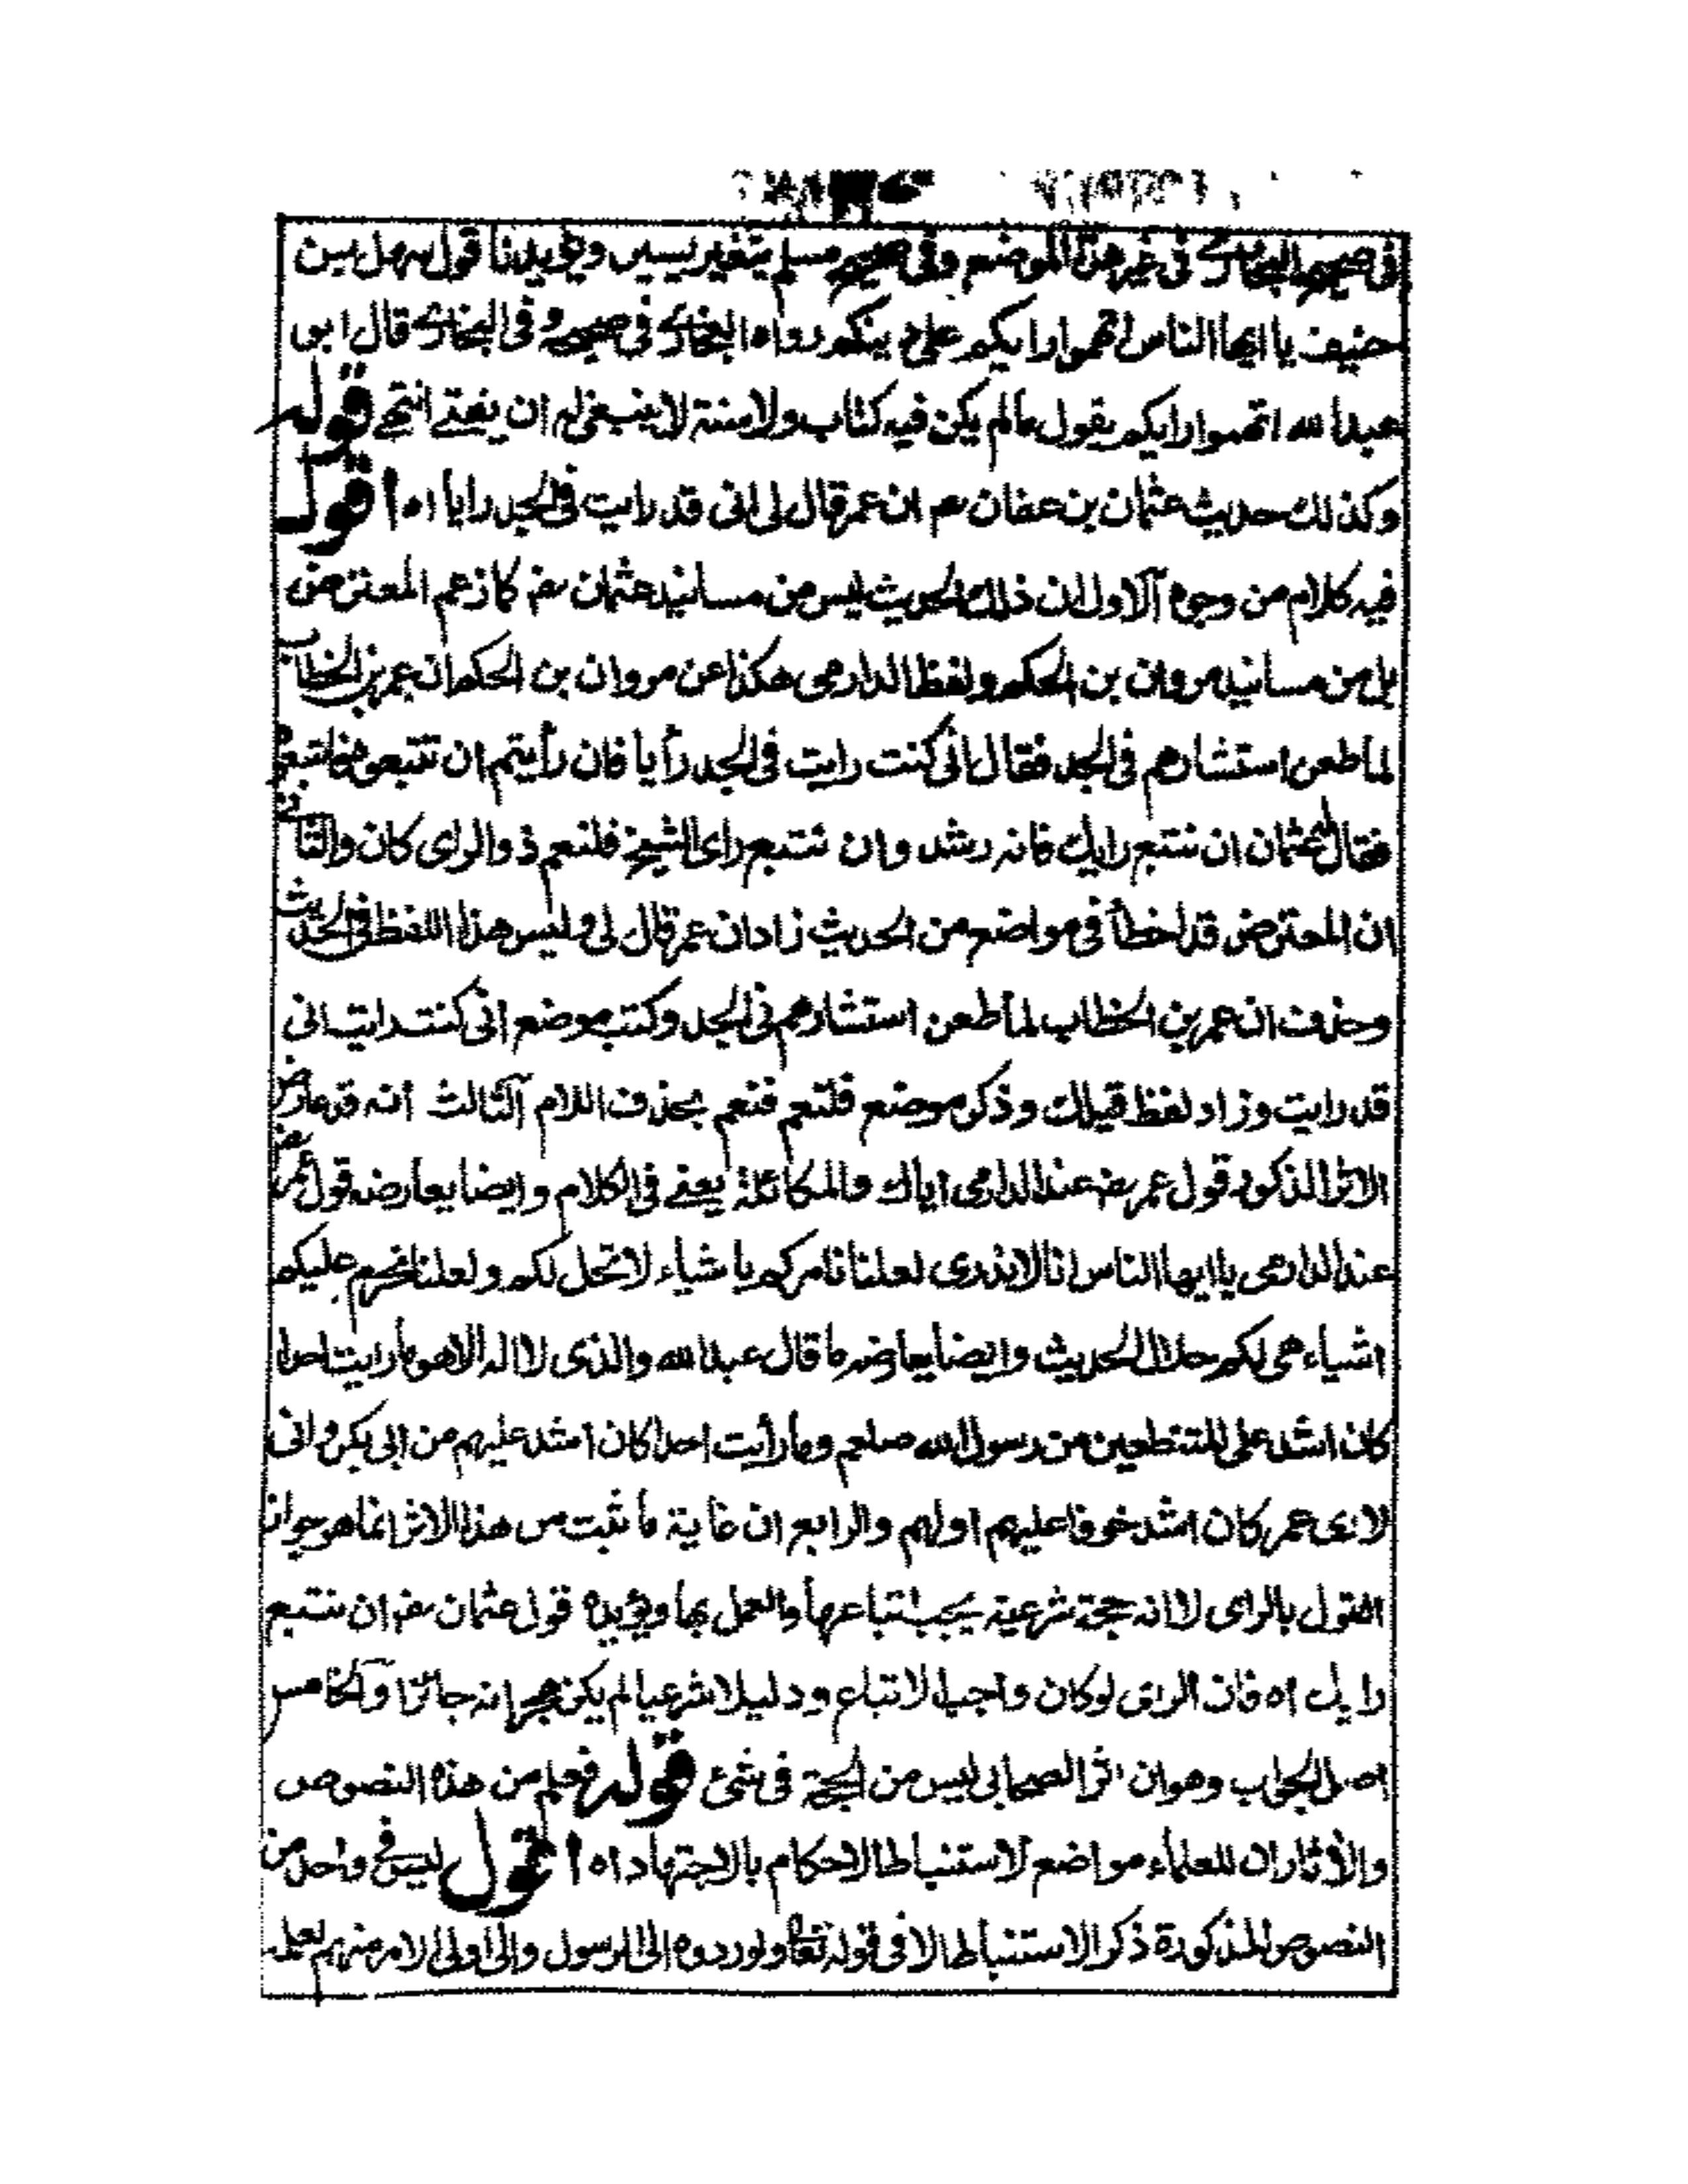 في صحيح البخاري في غير هذا الموضع وفي صحيح مسلم بتغير يسير ويؤيدنا قول سهل بن
حنيف يا ايها الناس اتهموا رايكم على دينكم رواه البخاري في صحيحه وفي البخاري قال ابو
عبد الله اتهموا رايكم يقول مالم يكن فيه كتاب ولا سنة لا ينبغي له ان يفتي انتهى قوله
وكذلك حديث عثمان بن عفان رض ان عمر قال لي اني قد رايت في الجد رايا اه اقول
فيه كلام من وجوه الاول ان ذلك الحديث ليس من مسانيد عثمان رض كما زعم المعترض
بل من مسانيد مروان بن الحكم ولفظ الدارمي هكذا عن مروان بن الحكم ان عمر بن الخطاب
لما طعن استشارهم في الجد فقال اني كنت رايت في الجد رأيا فان رأيتم ان تتبعوه فاتبعوه
فقال عثمان ان نتبع رايك فانه رشد وان نتبع راى الشيخ فلنعم ذو الراى كان والثاني
ان المعترض قد اخطأ في مواضع من الحديث زاد ان عمر قال لي وليس هذا اللفظ في الحديث
وحذف ان عمر بن الخطاب لما طعن استشارهم في الجد وكتب موضع اني كنت رايت اني
قد رايت وزاد لفظ قبلك وذكر موضع فلنعم فنعم بحذف اللام الثالث انه قد عارض
الاثر المذكور قول عمر رض عند الدارمي اياك والمكائلة يعني في الكلام وايضا يعارضه قول عمر رض
عند الدارمي يا ايها الناس انا لا ندري لعلنا نامركم باشياء لا تحل لكم ولعلنا نحرم عليكم
اشياء هي لكم حلال الحديث وايضا يعارضه ما قال عبد الله والذي لا اله الا هو ما رايت احدا
كان اشد على المتنطعين من رسول الله صلعم وما رأيت احدا كان اشد عليهم من ابي بكر واني
لارى عمر كان اشد خوفا عليهم اولهم والرابع ان غاية ما ثبت من هذا الاثر انما هو جواز
القول بالراى لا انه حجة شرعية يجب اتباعها والعمل بها ويؤيده قول عثمان رض ان نتبع
رايك اه فان الراى لو كان واجب الاتباع ودليلا شرعيا لم يكن هجرانه جائزا والخامس
اصل الجواب وهو ان اثر الصحابي ليس من الحجة في شئ قوله فعلم من هذه النصوص
والآثار ان للعلماء مواضع لاستنباط الاحكام بالاجتهاد اه اقول ليس في واحد من
النصوص المذكورة ذكر الاستنباط الا في قوله تعالى ولو ردوه الى الرسول والى اولى الامر منهم لعلمه